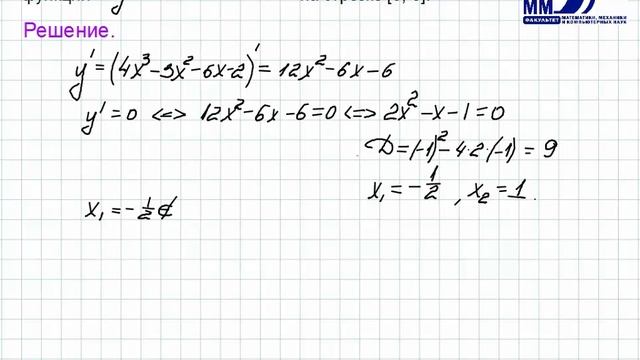 на отрезке
ММ
ФАКУЛЬТЕТ
МАТЕМАТИКИ, МЕХАНИКИ
И КОМПЬЮТЕРНЫХ НАУК
Решение.
y' = (4x³ - 3x² - 6x - 2)' = 12x² - 6x - 6
y' = 0 <=> 12x² - 6x - 6 = 0 <=> 2x² - x - 1 = 0
D = (-1)² - 4·2·(-1) = 9
x₁ = -1/2, x₂ = 1.
x₁ = -1/2 ∉